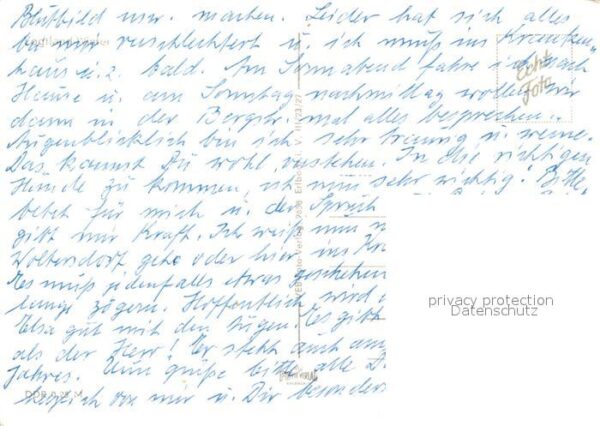 Blutbild usw. machen. Leider hat sich alles
bei mir verschlechtert u. ich muß ins Kranken-
haus u. z. bald. Am Sonnabend fahre ich nach
Hause u. am Sonntag nachmittag wollen wir
dann in der Bergstr. mal alles besprechen.
Augenblicklich bin ich sehr traurig u. weine.
Das kannst Du wohl verstehen. In die richtigen
Hände zu kommen, ist nun sehr wichtig! Bitte
betet für mich u. der Spruch
gibt mir Kraft. Ich weiß nun
Woltersdorf gehe oder hier ins
Es muß jedenfalls etwas geschehen
lange zögern. Hoffentlich wird
Elsa gut mit den Augen. Es gibt
als der Herr! Er steht auch am
Jahres. Nun grüße bitte alle
herzlich von mir u. Dir besonders
Echt
Foto
V III/23/27
privacy protection
Datenschutz